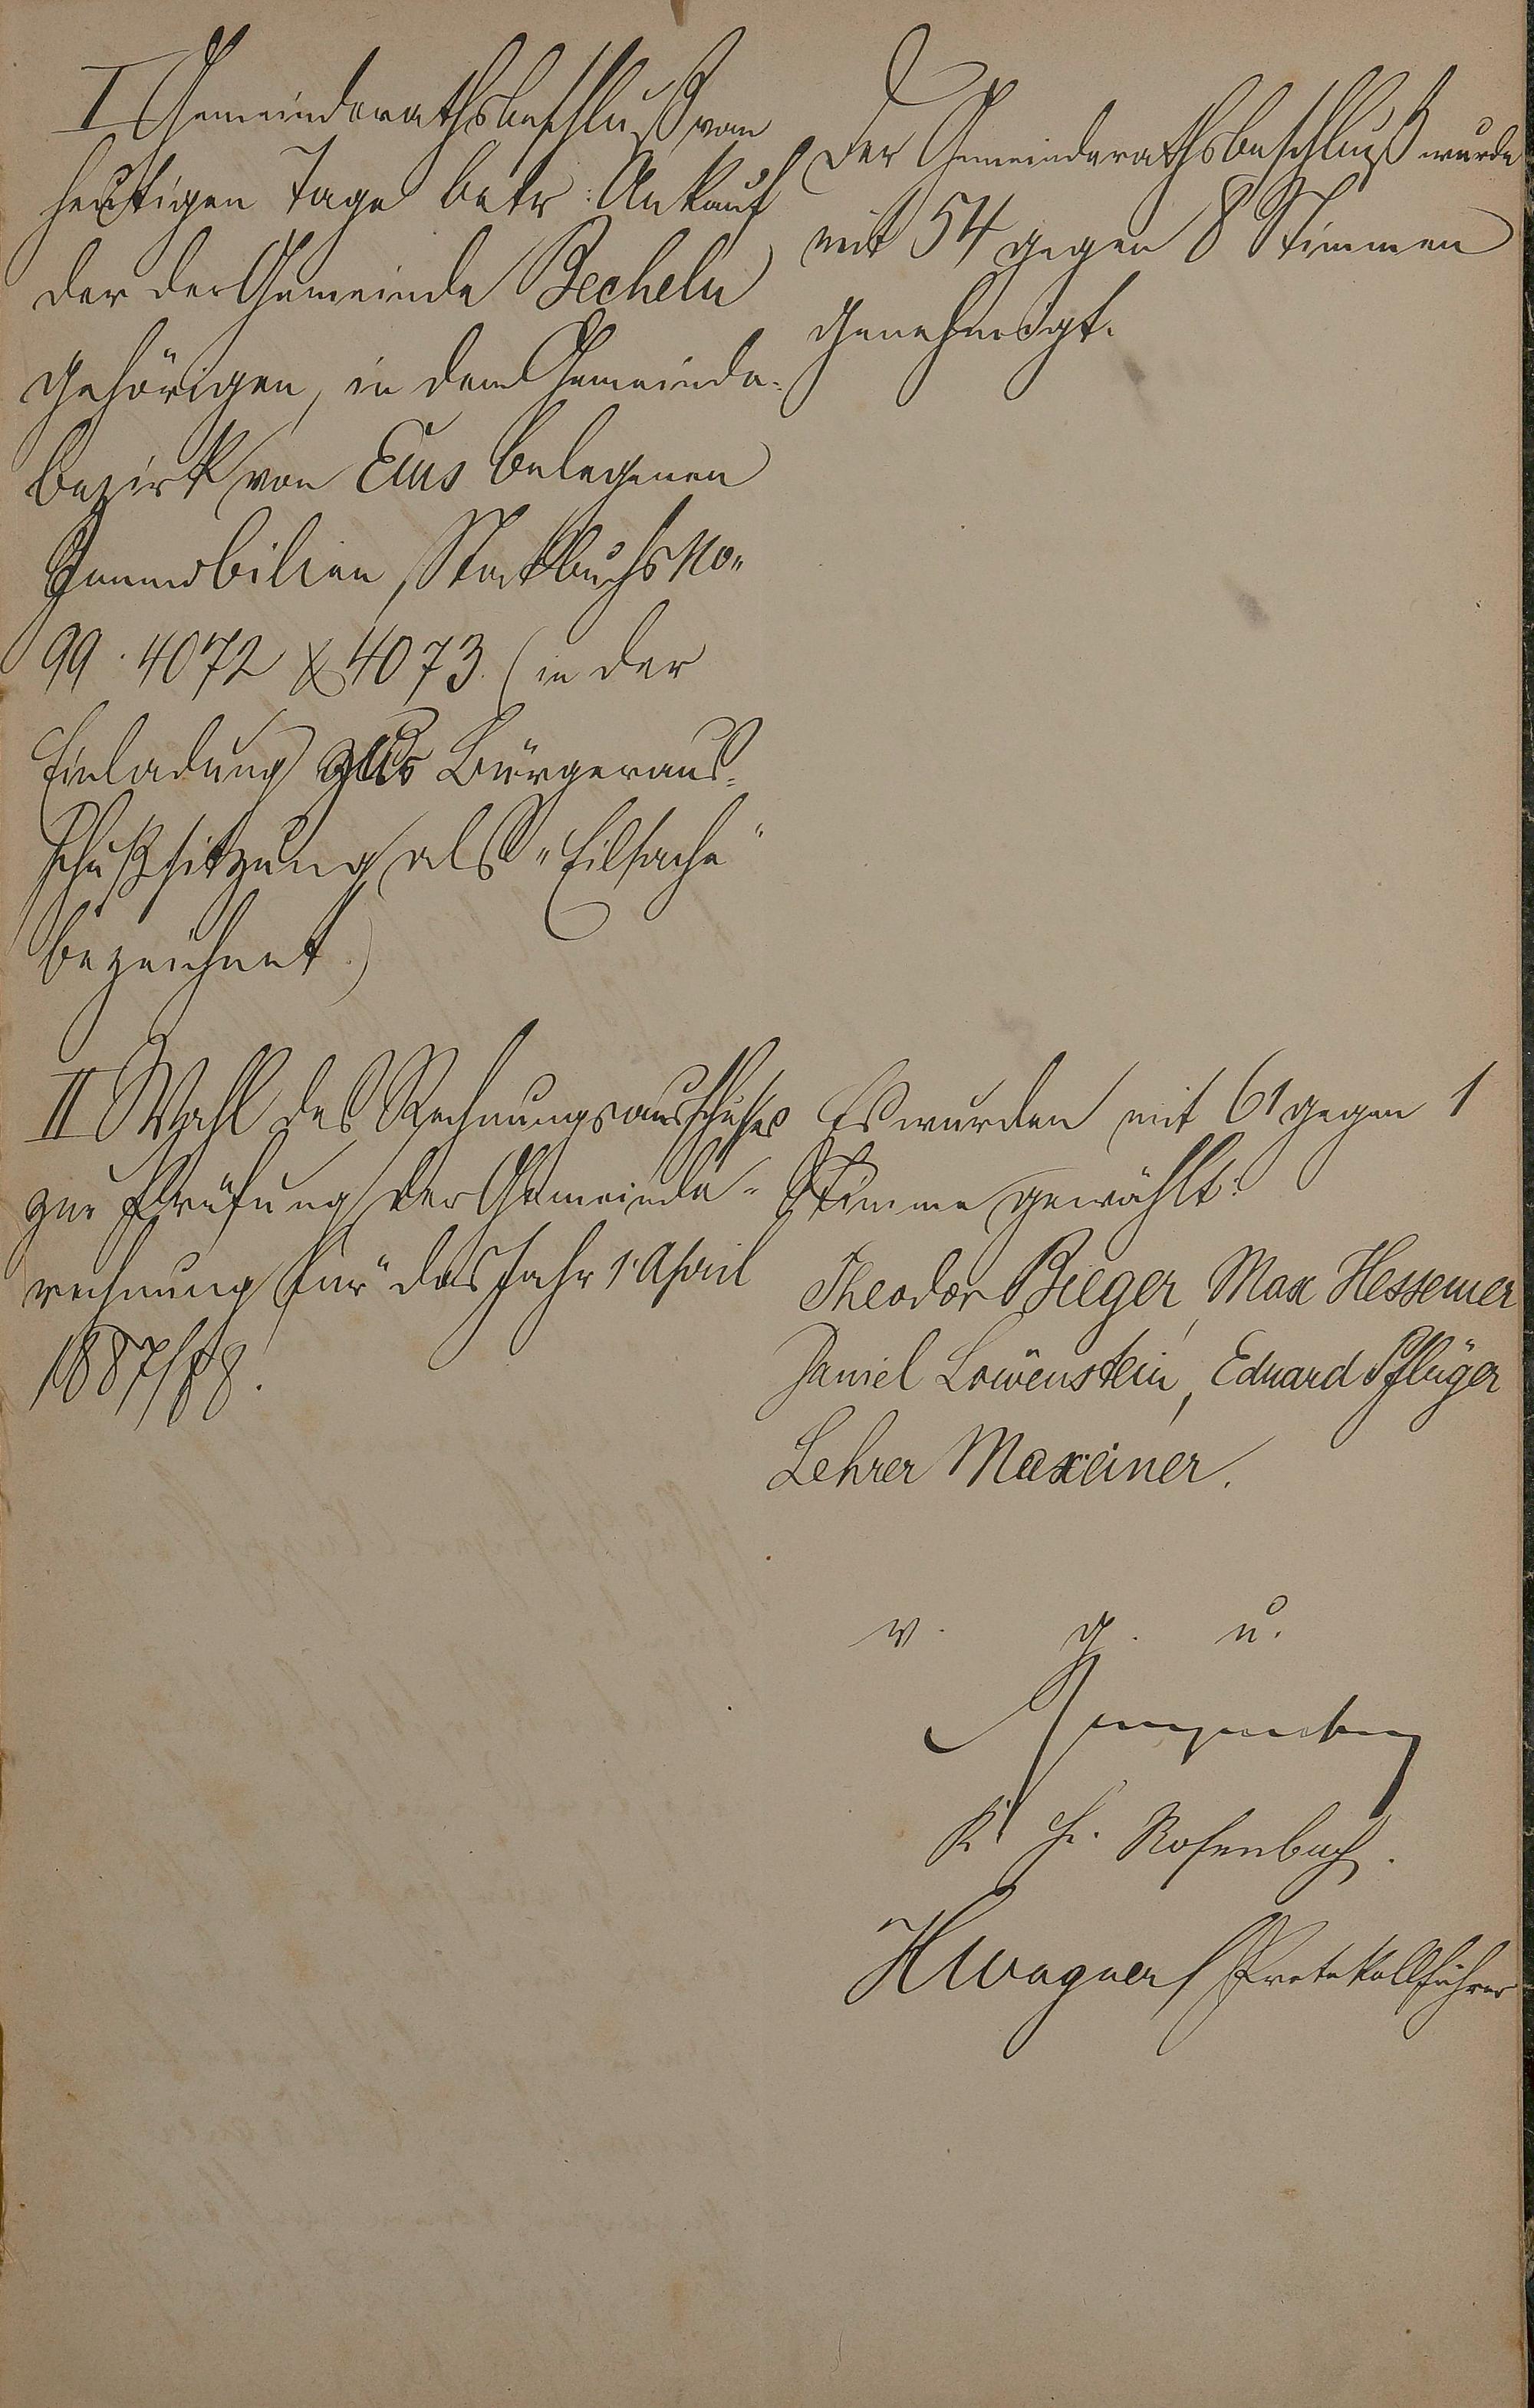 I Gemeinderathsbeschluß vom
heutigen Tage betr: Ankauf
der der Gemeinde Becheln
gehörigen, in dem Gemeinde-
bezirk von Ems belegenen
Immobilien, Stockbuchs No
99. 4072 & 4073. (in der
Einladung zur Bürgeraus-
schußsitzung als "Eilsache"
bezeichnet.)
Der Gemeinderathsbeschluß wurde
mit 54 gegen 8 Stimmen
genehmigt.
II Wahl des Rechnungsausschußes
zur Prüfung der Gemeinde-
rechnung für das Jahr 1. April
1887/88.
Es wurden mit 61 gegen 1
Stimme gewählt:
Theodor Bieger, Max Hessemer
Daniel Löwenstein, Eduard Pflüger
Lehrer Maxeiner.
v. g. u.
K. H. Rosenbach.
H Wagner, Protokollführer